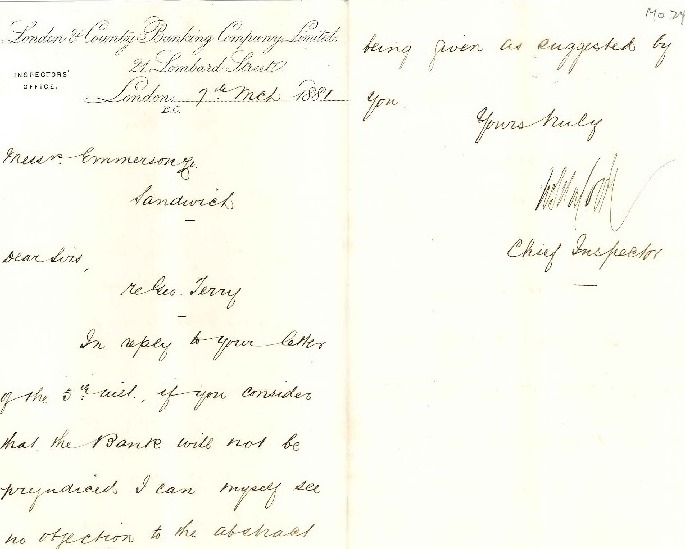 London & County Banking Company, Limited.
21, Lombard Street
INSPECTORS'
OFFICE.
London, 7th Mch 1881
E.C.
Messrs Emmerson & Co
Sandwich
Dear Sirs,
re Geo. Terry
In reply to your letter
of the 5th inst., if you consider
that the Bank will not be
prejudiced I can myself see
no objection to the abstract
Mo 24
being given as suggested by
you
Yours truly
Chief Inspector